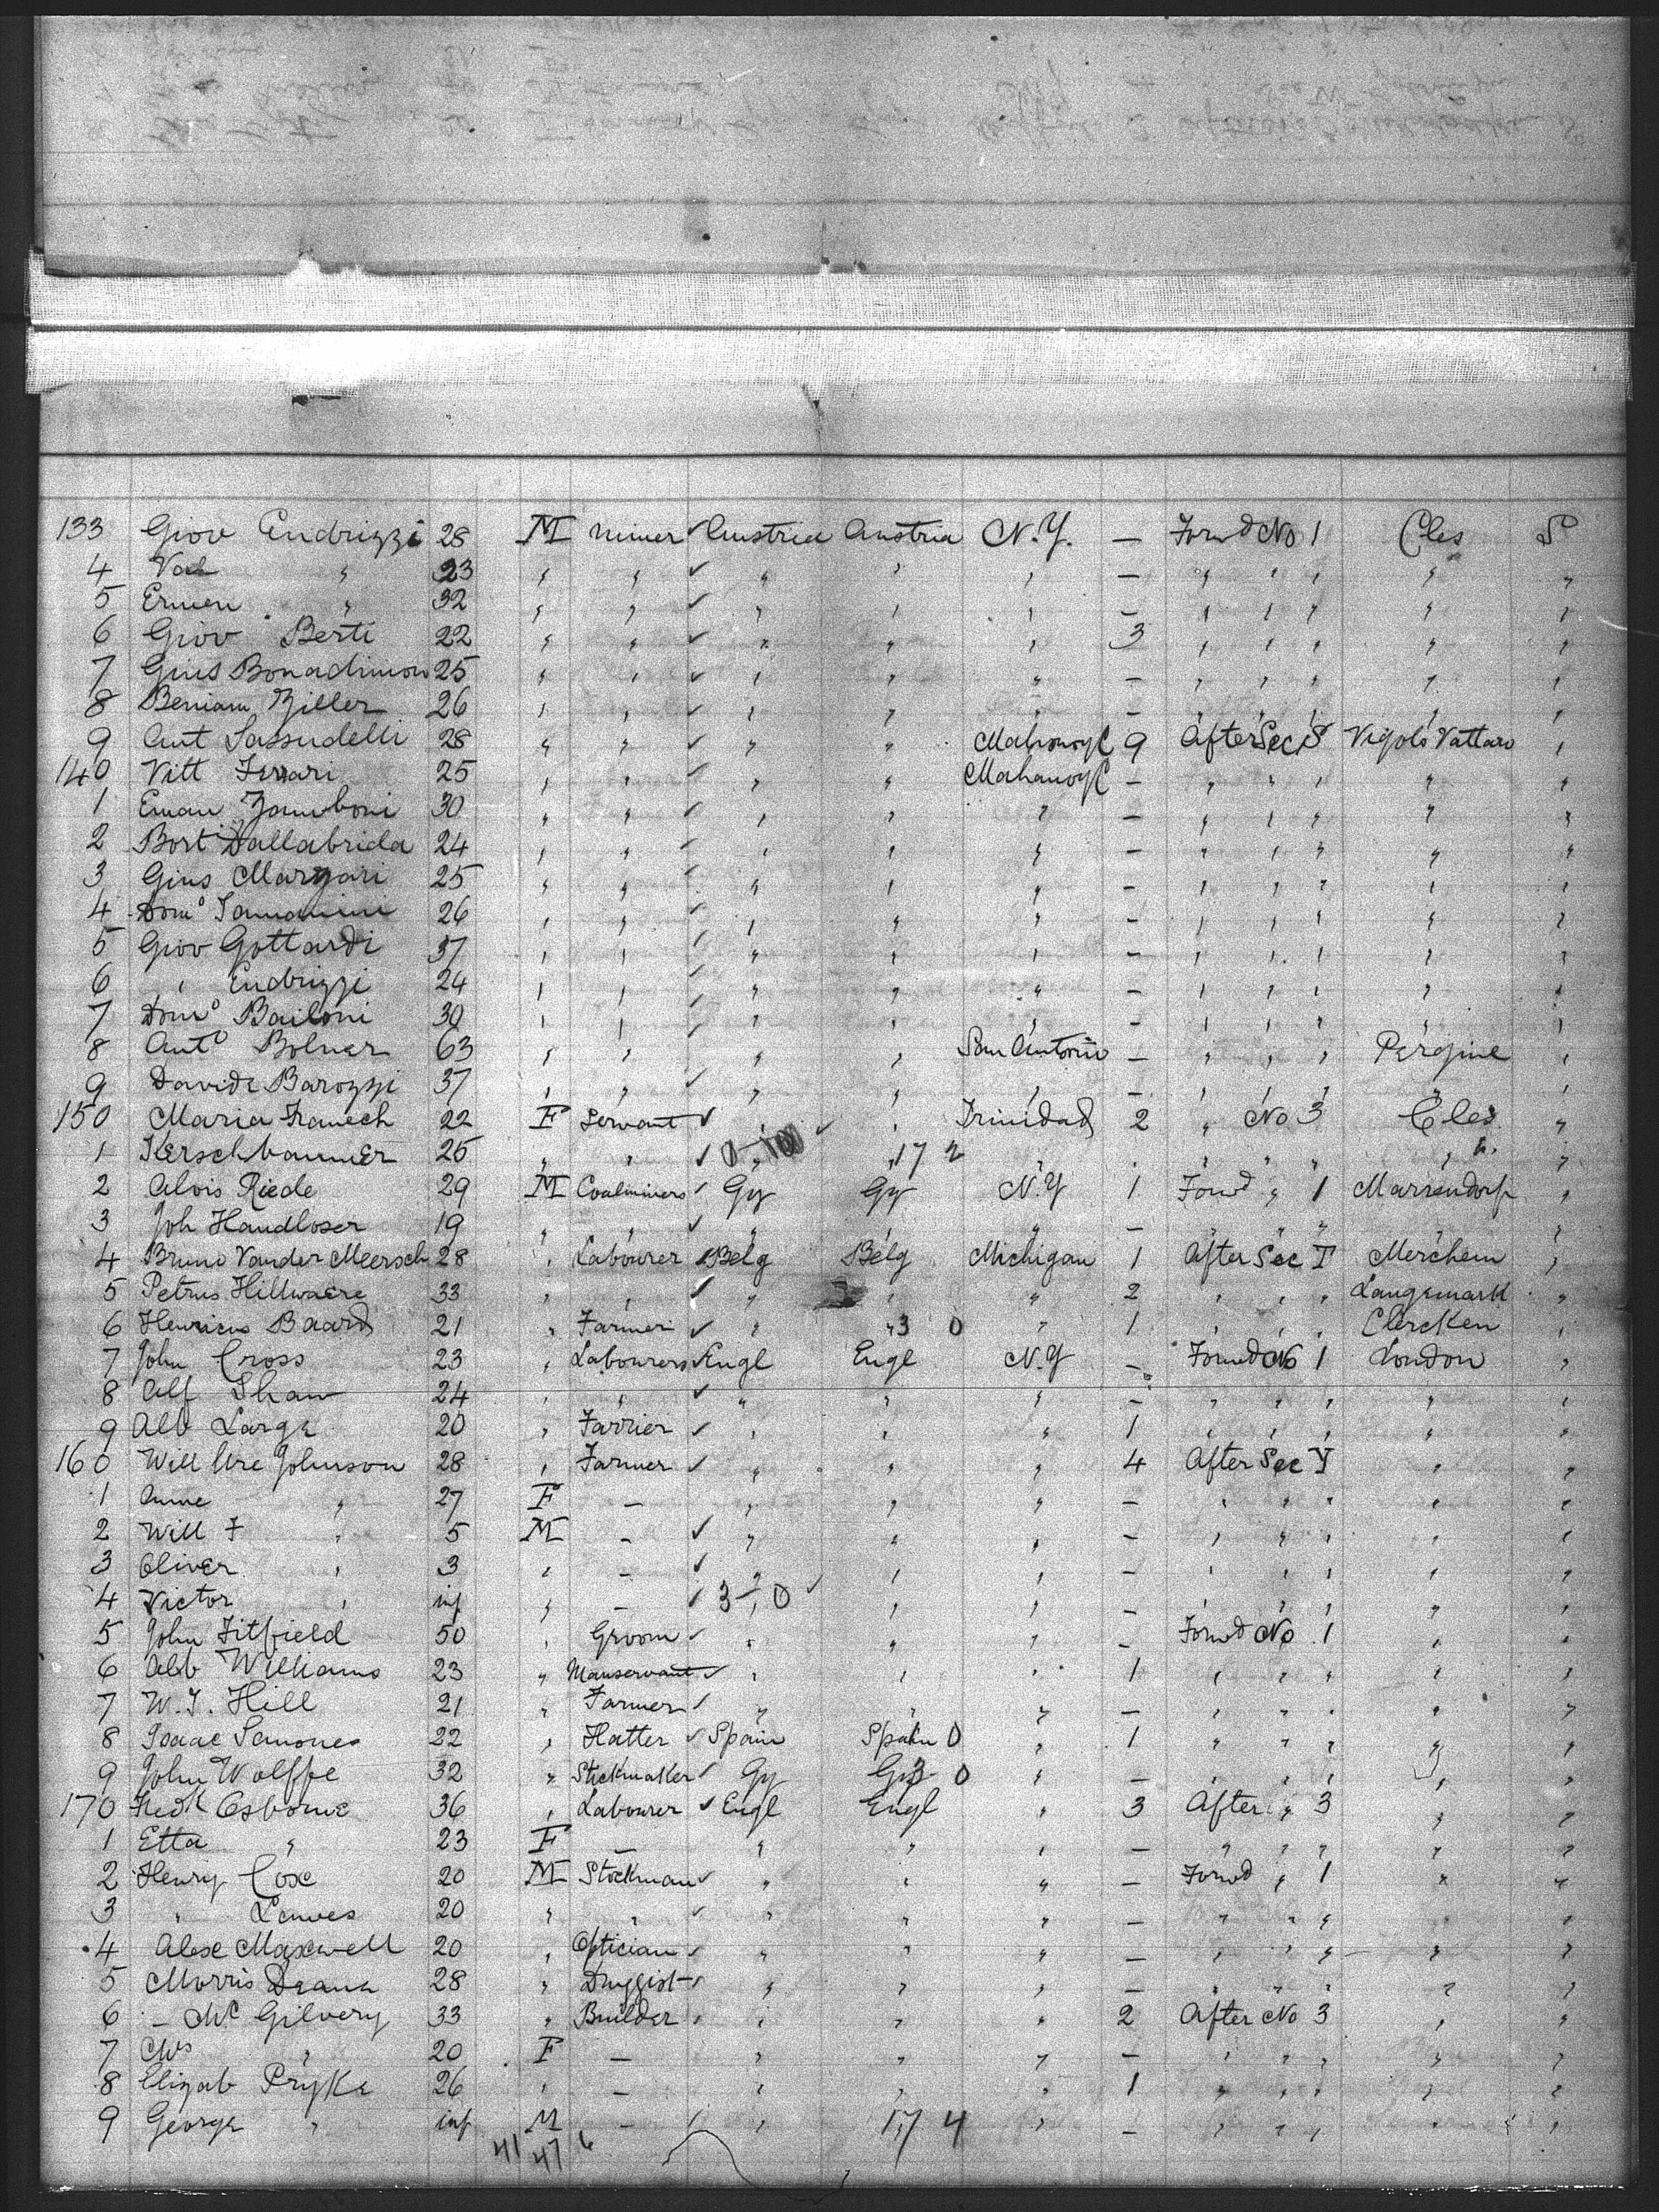 133 Giov Endrizzi 28 M Miner ✓ Austria Austria N.Y. — Forwd No 1 Cles S
4 Val " 23 " " ✓ " " " — " " " " "
5 Ermen " 32 " " ✓ " " " — " " " " "
6 Giov Berti 22 " " ✓ " " " 3 " " " " "
7 Gius Bonadiman 25 " " ✓ " " " — " " " " "
8 Beniam Ziller 26 " " ✓ " " " — " " " " "
9 Ant Sassudelli 28 " " ✓ " " Mahonoy C 9 After Sec S Vigolo Vattaro "
140 Vitt Ferrari 25 " " ✓ " " Mahanoy C — " " " " "
1 Eman Zamboni 30 " " ✓ " " " — " " " " "
2 Bort Dallabrida 24 " " ✓ " " " — " " " " "
3 Gius Margari 25 " " " " " — " " " " "
4 Domo 26 " " " " " — " " " " "
5 Giov Gottardi 37 " " ✓ " " " — " " " " "
6 " Endrizzi 24 " " ✓ " " " — " " " " "
7 Domo Bailoni 30 " " ✓ " " " — " " " " "
8 Anto Bolner 63 " " " " San Antonio — " " " Pergine "
9 Davide Barozzi 37 " " ✓ " " " — " " " " "
150 Maria Franech 22 F Servant ✓ " ✓ " Trinidad 2 " No 3 Cles "
1 Kerschbaumer 25 " " ✓ " 17 2 " " " " " "
2 Alois Riede 29 M Coalminers ✓ Gy Gy N.Y 1 Forwd " 1 Marrendorf "
3 Joh Handloser 19 " " ✓ " " " — " " " " "
4 Bruno Vander Meersch 28 " Labourer ✓ Belg Belg Michigan 1 After Sec T Merchem "
5 Petrus Hillwaere 33 " " ✓ " " " 2 " " " Langemark "
6 Henricus Baard 21 " Farmer ✓ " " 3 0 " 1 " " " Clercken "
7 John Cross 23 " Labourers ✓ Engl Engl N.Y — Forwd No 1 London "
8 Alf Shaw 24 " " ✓ " " " — " " " " "
9 Alb Large 20 " Farrier ✓ " " " 1 " " " " "
160 Will Ure Johnson 28 " Farmer ✓ " " " 4 After Sec Y " "
1 Anne " 27 F — " " " — " " " " "
2 Will F " 5 M — ✓ " " " — " " " " "
3 Oliver " 3 " — ✓ " " " — " " " " "
4 Victor " inf " — ✓ 3 — 0 ✓ " " — " " " " "
5 John Titfield 50 " Groom ✓ " " " — Forwd No 1 " "
6 Alb Williams 23 " Manservant ✓ " " " 1 " " " " "
7 W. J. Hill 21 " Farmer ✓ " " " — " " " " "
8 Isaac Samones 22 " Hatter ✓ Spain Spain 0 " 1 " " " " "
9 John Wolffe 32 " Stickmaker ✓ Gy Gy 3 0 " — " " " " "
170 Fredk Osborne 36 " Labourer ✓ Engl Engl " 3 After " 3 " "
1 Etta " 23 F — " " " — " " " " "
2 Henry Cox 20 M Stockman ✓ " " " — Forwd " 1 " "
3 " Lawes 20 " " ✓ " " " — " " " " "
4 Alex Maxwell 20 " Optician ✓ " " " — " " " " "
5 Morris Deana 28 " Druggist ✓ " " " — " " " " "
6 — Mc Gilvery 33 " Builder " " " 2 After No 3 " "
7 Mrs " 20 F — " " " — " " " " "
8 Elizab Pryke 26 " — " " " 1 " " " " "
9 George " inf M — " 17 4 " — " " " " "
41 47 6